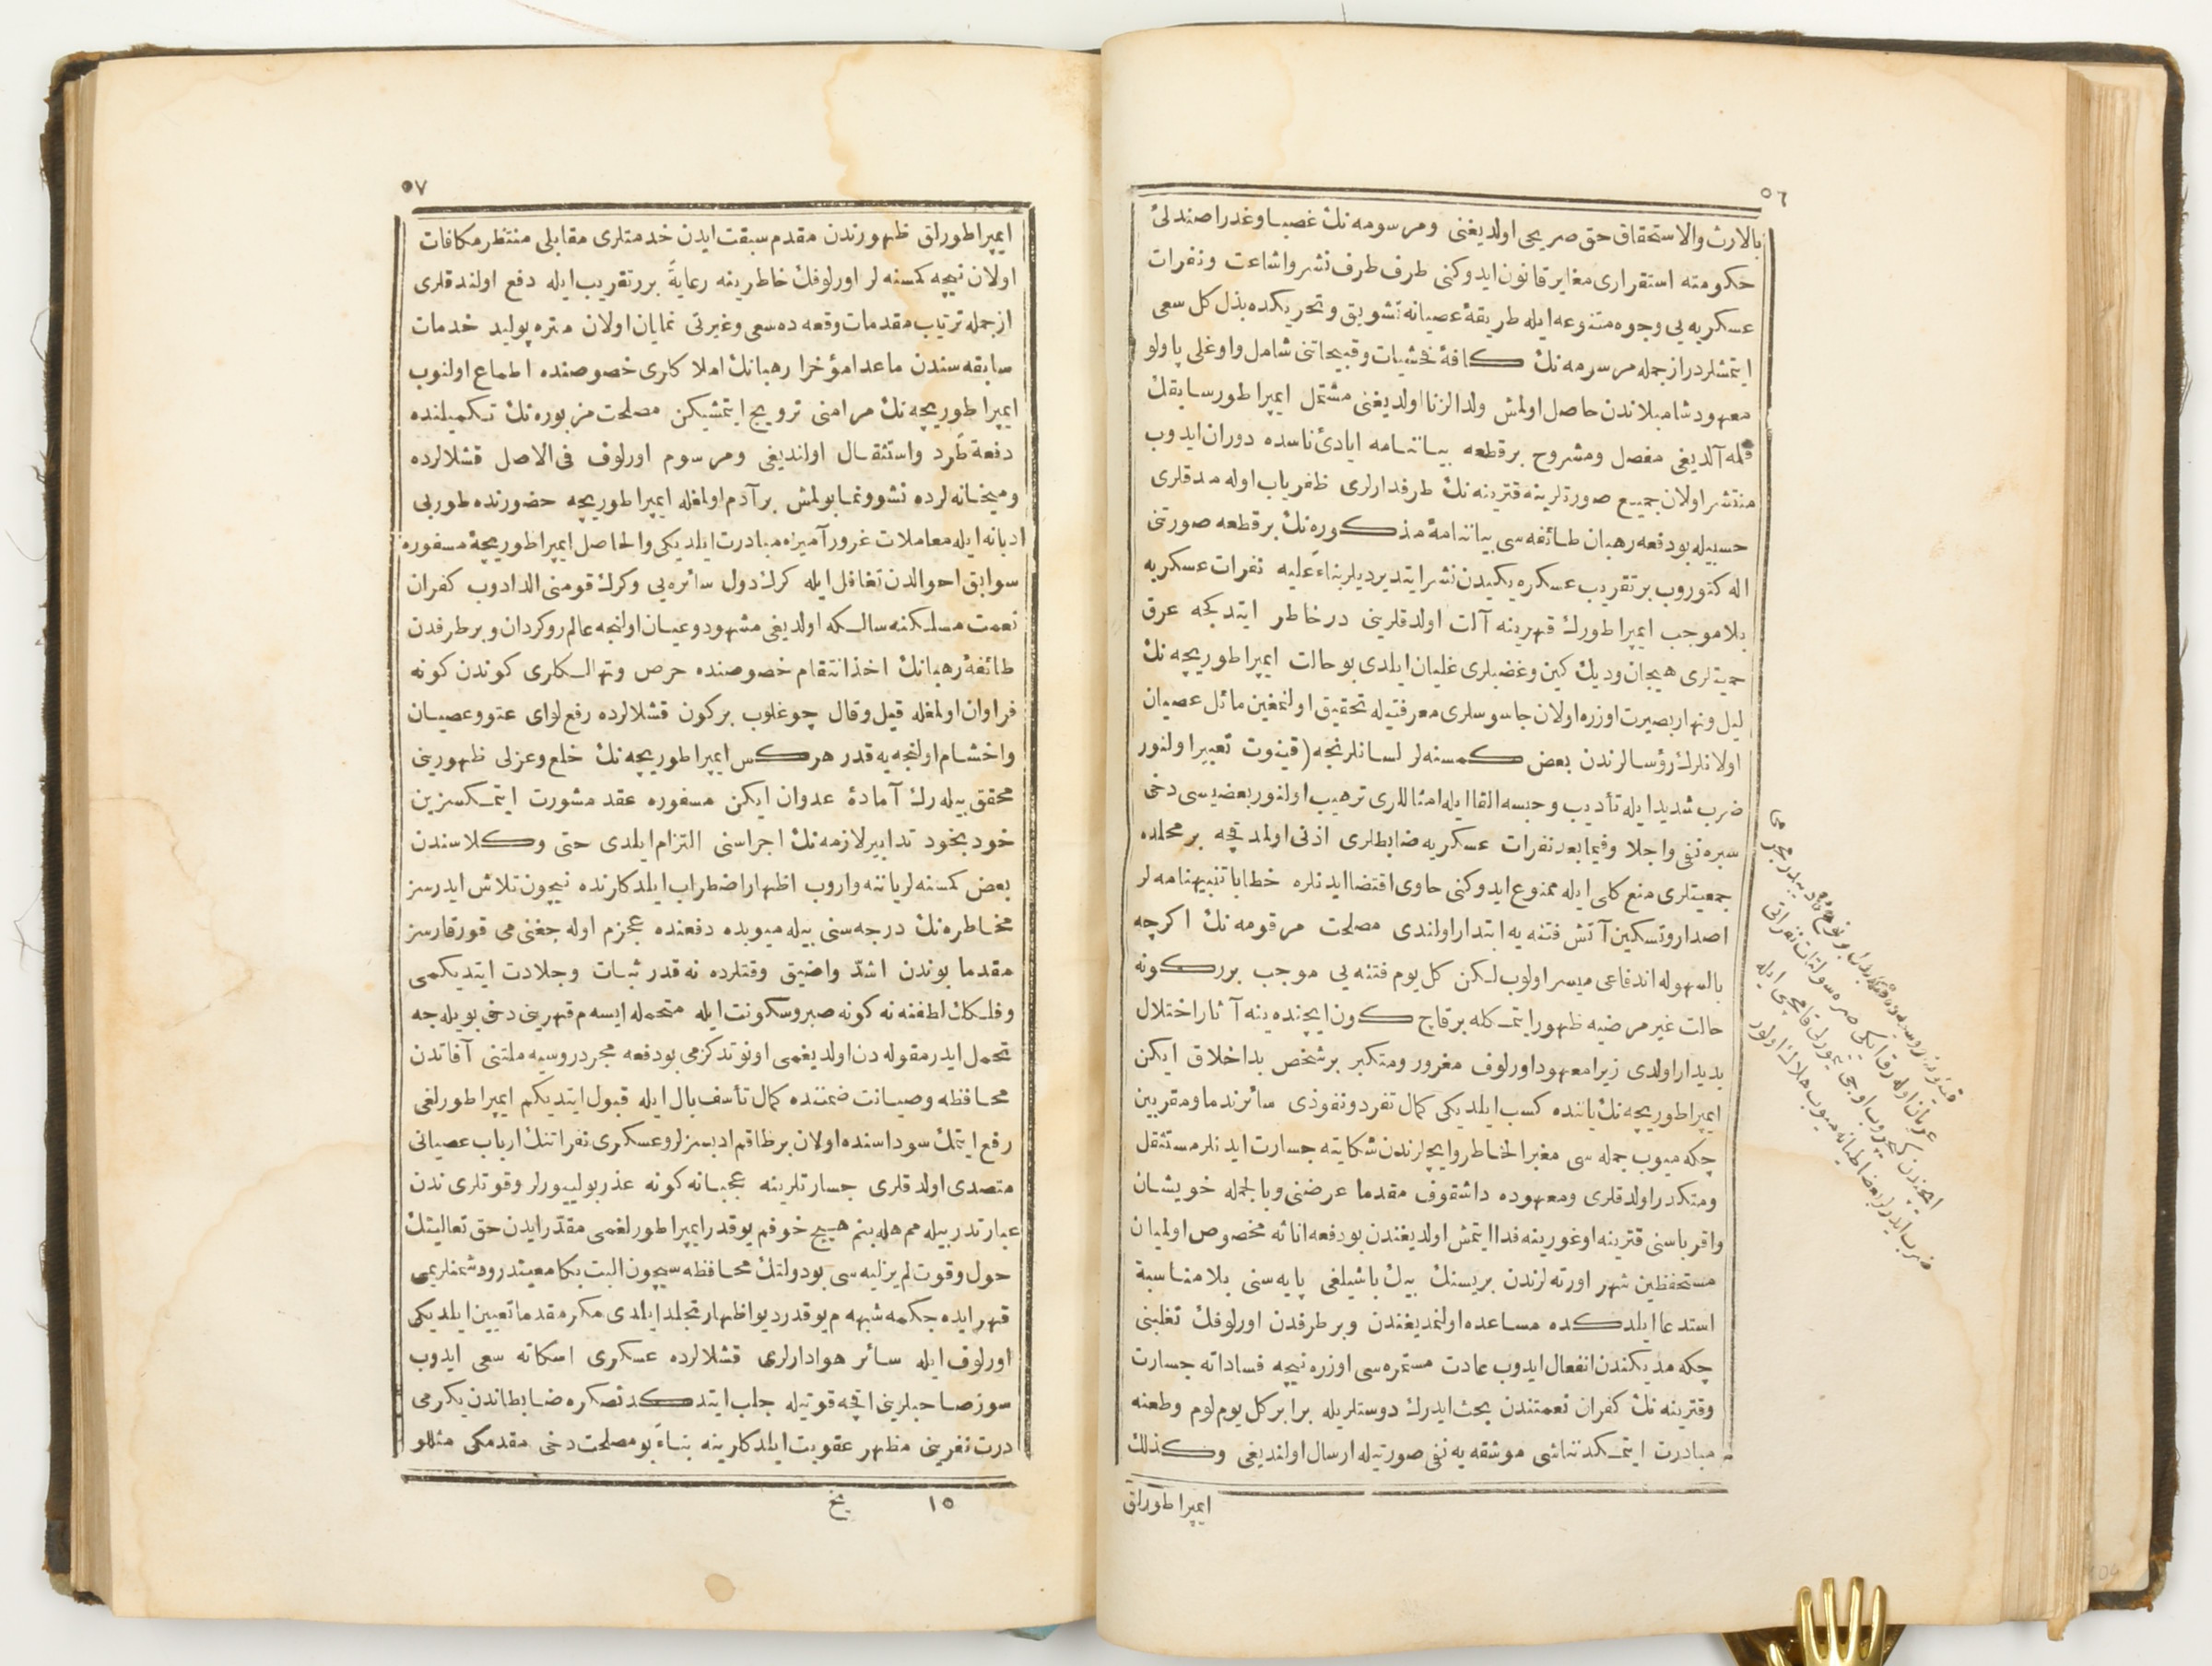 ٥٦
بالارث والاستحقاق حق صريحی اولديغنی ومرسومه نك غصبا وغدرا صندلئ
حكومته استقراری مغاير قانون ايدوكنی طرف طرف نشر واشاعت ونفرات
عسكريه يی وجوه متنوعه ايله طريقهٔ عصيانه تشويق وتحريكده بذل كل سعی
ايتمشلردر از جمله مرسومه نك كافهٔ فحشيات وقبيحاتنی شامل واوغلی پاولو
معهود شامبلاندن حاصل اولمش ولد الزنا اولديغنی مشتمل ايمپراطور سابقك
قلمه آلديغی مفصل ومشروح برقطعه بياننامه ايادئ ناسده دوران ايدوب
منتشر اولان جميع صورتلرينه قترينه نك طرفدارلری ظفرياب اوله مدقلری
حسبيله بودفعه رهبان طائفه سی بياننامهٔ مذكوره نك برقطعه صورتنی
اله كتوروب برتقريب عسكره يكيدن نشر ايتديرديلر بناءً عليه نفرات عسكريه
بلاموجب ايمپراطورك قهرينه آلت اولدقلرينی درخاطر ايتدكجه عرق
حميتلری هيجان وديك كين وغضبلری غليان ايلدی بوحالت ايمپراطوريچه نك
ليل ونهار بصيرت اوزره اولان جاسوسلری معرفتيله تحقيق اولنمغين مائل عصيان
اولانلرك رؤسالرندن بعض كمسنه لر لسانلرنجه (قينوت تعبير اولنور
ضرب شديد ايله تأديب وحبسه القا ايله امثاللری ترهيب اولنور بعضيسی دخی
سبره نفی واجلا وفيما بعد نفرات عسكريه ضابطلری اذنی اولمدقچه برمحلده
جمعيتلری منع كلی ايله ممنوع ايدوكنی حاوی اقتضا ايدنلره خطابا تنبيهنامه لر
اصدار وتسكين آتش فتنه يه ابتدار اولندی مصلحت مرقومه نك اكرچه
بالسهوله اندفاعی ميسر اولوب لكن كل يوم فتنه يی موجب بررگونه
حالت غير مرضيه ظهور ايتمكله برقاچ كون ايچنده ينه آثار اختلال
بديدار اولدی زيرا معهود اورلوف مغرور ومتكبر برشخص بداخلاق ايكن
ايمپراطوريچه نك ياننده كسب ايلديكی كمال تفرد ونفوذی سائر ندما ومقربين
چكه ميوب جمله سی مغبر الخاطر وايچلرندن شكايته جسارت ايدنلر مستثقل
ومتكدر اولدقلری ومعهوده داشقوف مقدما عرضنی وبالجمله خويشان
واقرباسنی قترينه اوغورينه فدا ايتمش اولديغندن بودفعه اناثه مخصوص اولميان
مستحفظين شهر اورته لرندن بريسنك بيك باشيلغی پايه سنی بلامناسبة
استدعا ايلدكده مساعده اولنمديغندن وبرطرفدن اورلوفك تغلبنی
چكه مديكندن انفعال ايدوب عادت مستمره سی اوزره نيچه فساداته جسارت
وقترينه نك كفران نعمتندن بحث ايدرك دوستلريله برابر كل يوم لوم وطعنه
مبادرت ايتمكدنناشی موشقه يه نفی صورتيله ارسال اولنديغی وكذلك
ايمپراطورلق
عريان اوله رق ايكی صره سولتات نفراتی
ضرب ايدرلر بعضا طيانه ميوب هلاك اولور
٥٧
ايمپراطورلق ظهورندن مقدم سبقت ايدن خدمتلری مقابلی منتظر مكافات
اولان نيچه كمسنه لر اورلوفك خاطرينه رعايةً بررتقريب ايله دفع اولندقلری
از جمله ترتيب مقدمات وقعه ده سعی وغيرتی نمايان اولان متره پوليد خدمات
سابقه سندن ماعدا مؤخرا رهبانك املاكاری خصوصنده اطماع اولنوب
ايمپراطوريچه نك مرامنی ترويج ايتمشيكن مصلحت مزبوره نك تكميلنده
دفعة طرد واستثقال اولنديغی ومرسوم اورلوف فی الاصل قشلالرده
وميخانه لرده نشو ونما بولمش برآدم اولمغله ايمپراطوريچه حضورنده طوربی
ادبانه ايله معاملات غرور آميزه مبادرت ايلديكی والحاصل ايمپراطوريچهٔ مسفوره
سوابق احوالدن تغافل ايله كرك دول سائره يی وكرك قومنی الدادوب كفران
نعمت مسلكنه سالكه اولديغی مشهود وعيان اولنجه عالم روكردان وبرطرفدن
طائفهٔ رهبانك اخذ انتقام خصوصنده حرص وتهالكاری كوندن كونه
فراوان اولمغله قيل وقال چوغلوب بركون قشلالرده رفع لوای عتو وعصيان
واخشام اولنجه يه قدر هركس ايمپراطوريچه نك خلع وعزلی ظهورينی
محقق بيله رك آمادهٔ عدوان ايكن مسفوره عقد مشورت ايتمكسزين
خود بخود تدابير لازمه نك اجراسنی التزام ايلدی حتی وكلاسندن
بعض كمسنه لر ياننه واروب اظهار اضطراب ايلدكارنده نيچون تلاش ايدرسز
مخاطره نك درجه سنی بيله ميوبده دفعنده عجزم اوله جغنی می قورقارسز
مقدما بوندن اشد واضيق وقتلرده نه قدر ثبات وجلادت ايتديكمی
وفلكك لطفنه نه كونه صبر وسكونت ايله متحمله ايسه م قهرينی دخی بويله جه
تحمل ايدر مقوله دن اولديغمی اونوتدكزمی بودفعه مجرد روسيه ملتنی آفاتدن
محافظه وصيانت ضمننده كمال تأسف بال ايله قبول ايتديكم ايمپراطورلغی
رفع ايتمك سوداسنده اولان برطاقم ادبسزلر وعسكری نفراتنك ارباب عصيانی
متصدی اولدقلری جسارتلرينه عجبا نه كونه عذر بولييورلر وقوتلری ندن
عبارتدر بيله مم هله بنم هيچ خوفم يوقدر ايمپراطورلغمی مقدر ايدن حق تعالينك
حول وقوت لم يزليه سی بودولتك محافظه سيچون البت بكا معيندر ودشمنلريمی
قهر ايده جكمه شبهه م يوقدر ديو اظهار تجلد ايلدی مكر مقدما تعيين ايلديكی
اورلوف ايله سائر هوادارلری قشلالرده عسكری اسكاته سعی ايدوب
سوز صاحبلرينی اقچه قوتيله جلب ايتدكدنصكره ضابطاندن يكرمی
درت نفرينی مظهر عقوبت ايلدكارينه بناءً بو مصلحت دخی مقدمكی مثللو
١٥
يخ